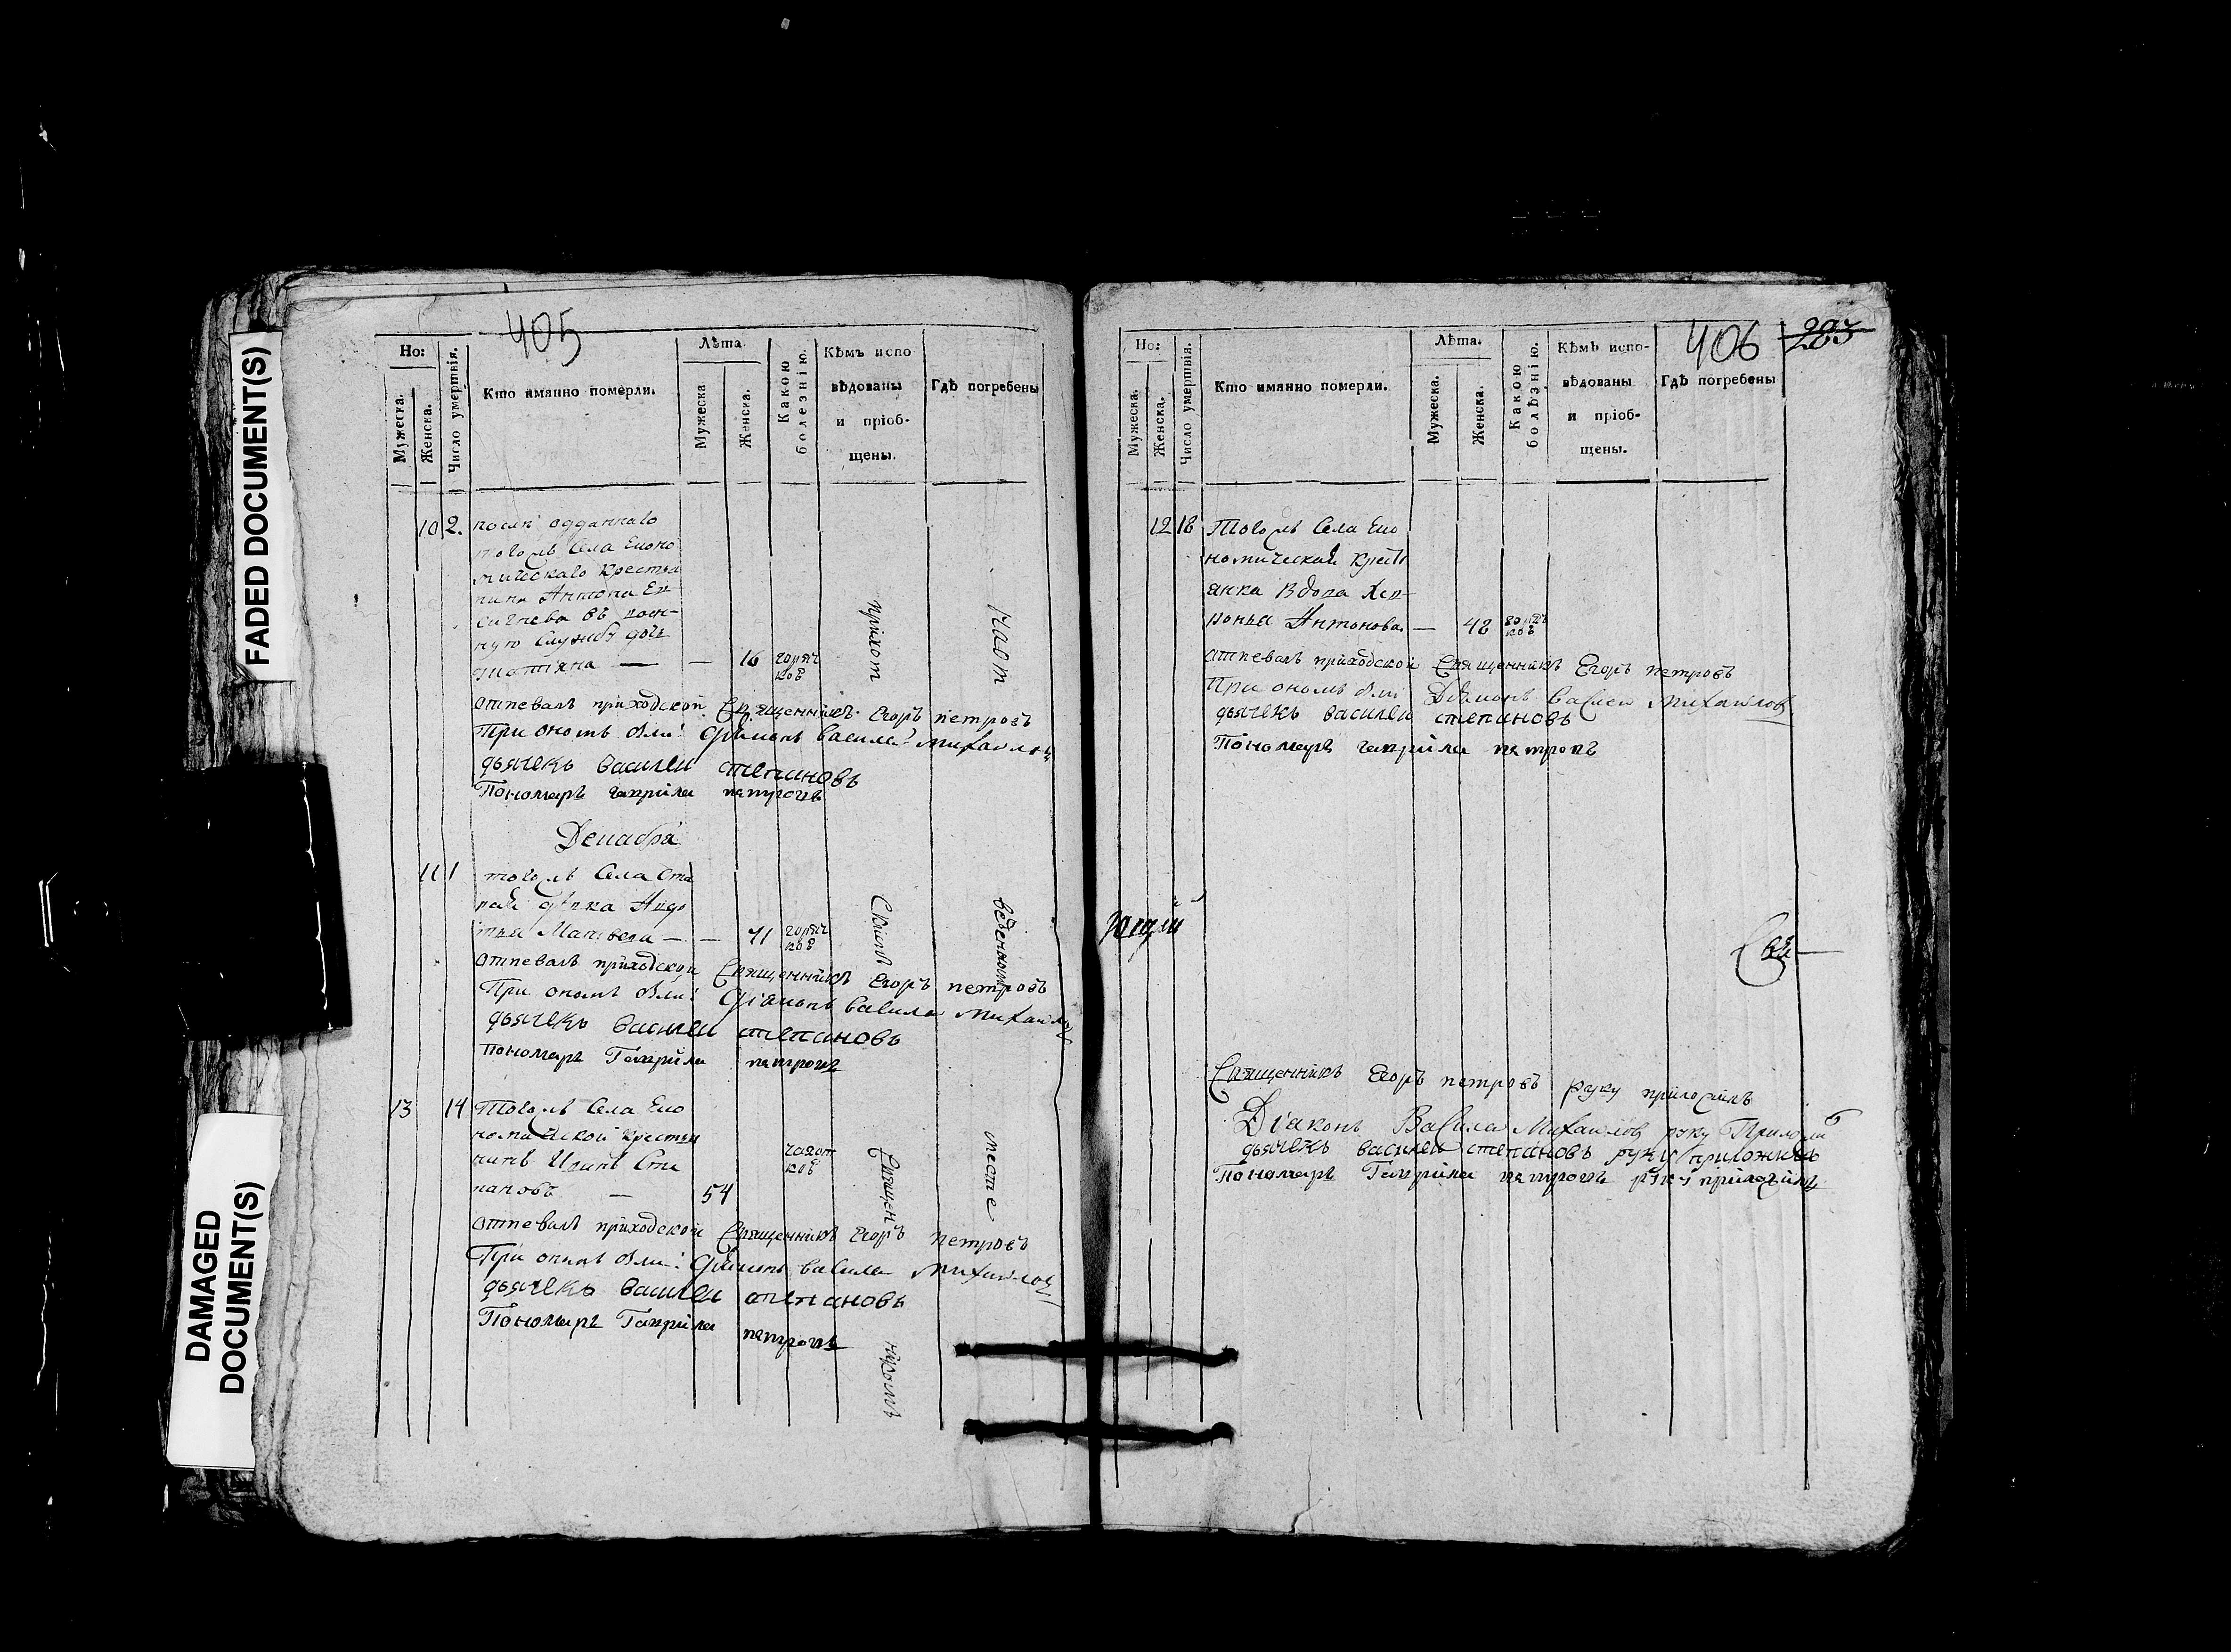 FADED DOCUMENT(S)
DAMAGED DOCUMENT(S)
405
Но:
Мужеска.
Женска.
Число умертвія.
Кто имянно померли.
Лѣта.
Мужеска
Женска.
Какою болезнію.
Кѣмъ испо
вѣдованы
и пріоб-
щены.
Гдѣ погребены
10 2. после одданнаго
тогожъ Села Еконо
мическаго крестья
нина Антона Ев
сигнева въ
ную службу дочь
16 горяч
кой
отпевалъ приходской Священникъ Егоръ петровъ
При ономъ были Діаконъ Василеи Михаиловъ
дьячекъ василеи степановъ
Пономарь гаврила петровъ
Декабря
11 1 тогожъ Села Ста
рая девка Авдо
тья Матвева — — 71 горяч
кой
отпевалъ приходской Священникъ Егоръ петровъ
При ономъ были Діаконъ Василеи Михаиловъ
дьячекъ василеи степановъ
Пономарь Гаврила петровъ
13 14 Тогожъ Села Еко
номической крестья
нинъ Степановъ — 54
кой
отпевалъ приходской Священникъ Егоръ петровъ
При ономъ были Діаконъ Василеи Михаиловъ
дьячекъ василеи степановъ
Пономарь Гаврила петровъ
приход
Скимъ
Священ
никомъ
наот
веденном
месте
406
203
Но:
Мужеска.
Женска.
Число умертвія.
Кто имянно померли.
Лѣта.
Мужеска.
Женска.
Какою болѣзнію.
Кѣмъ испо-
вѣдованы
и пріоб-
щены.
Гдѣ погребены
12 18 Тогожъ Села Еко
номическая крестья
анка вдова Хев
ронья Антонова — 48 горяч
кой
отпевалъ приходской Священникъ Егоръ петровъ
При ономъ были Діаконъ Василеи Михаиловъ
дьячекъ василеи степановъ
Пономарь гаврила петровъ
Священникъ Егоръ петровъ руку приложилъ
Діаконъ Василеи Михаиловъ руку Приложилъ
дьячекъ василеи степановъ руку приложилъ
Пономарь Гаврила петровъ руку приложилъ